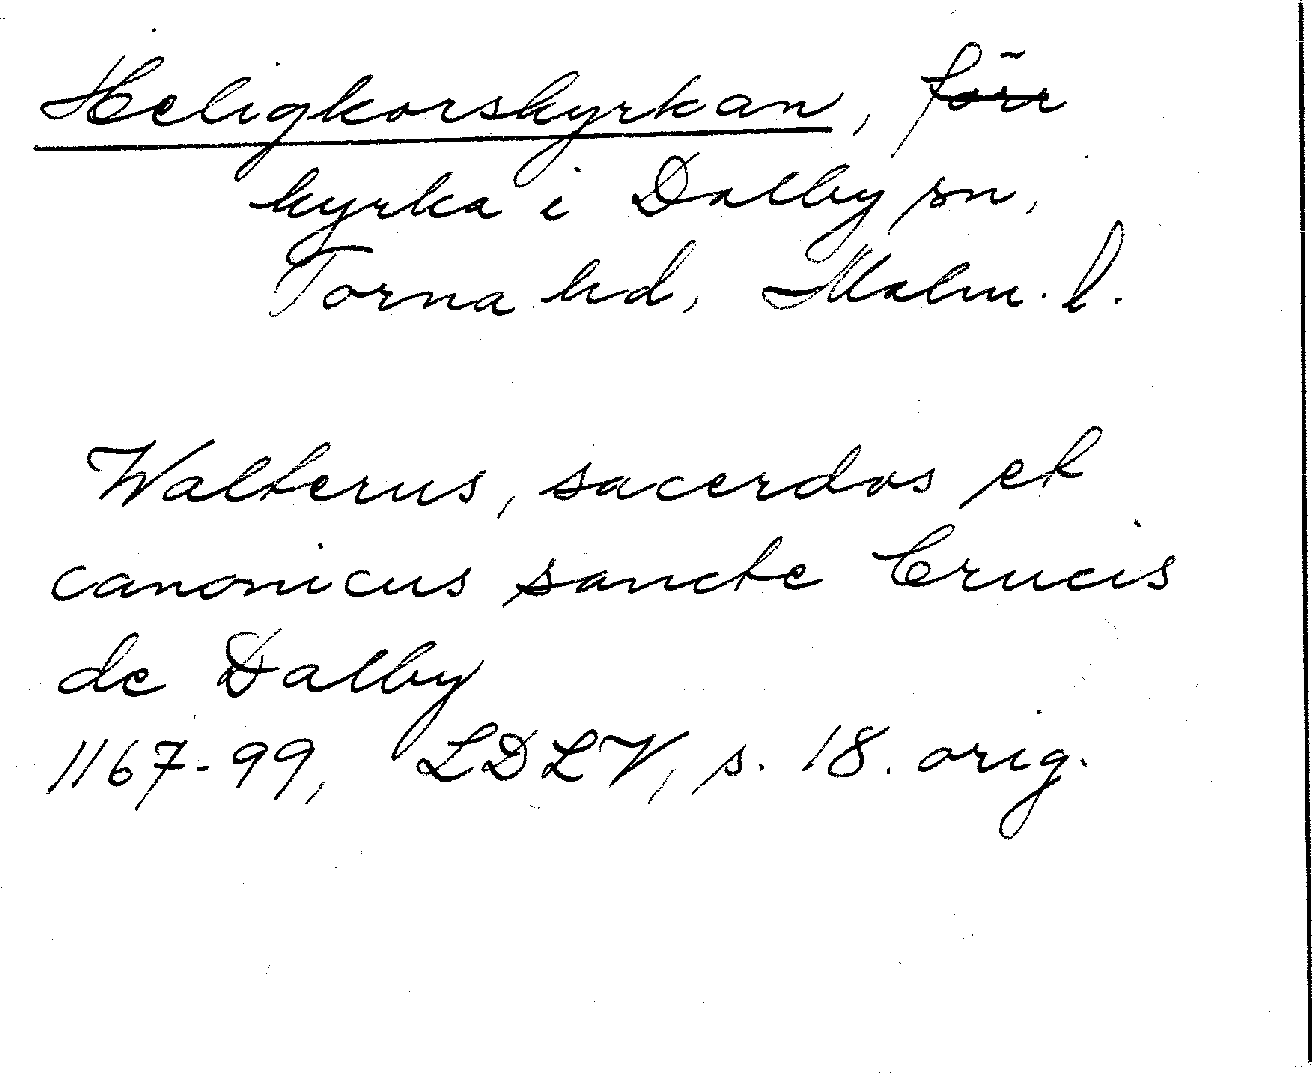 Heligkorskyrkan, förr
kyrka i Dalby sn,
Torna hd, Malm. l.
Walterus, sacerdos et
canonicus sancte Crucis
de Dalby
1167-99, LDLV, s. 18. orig.